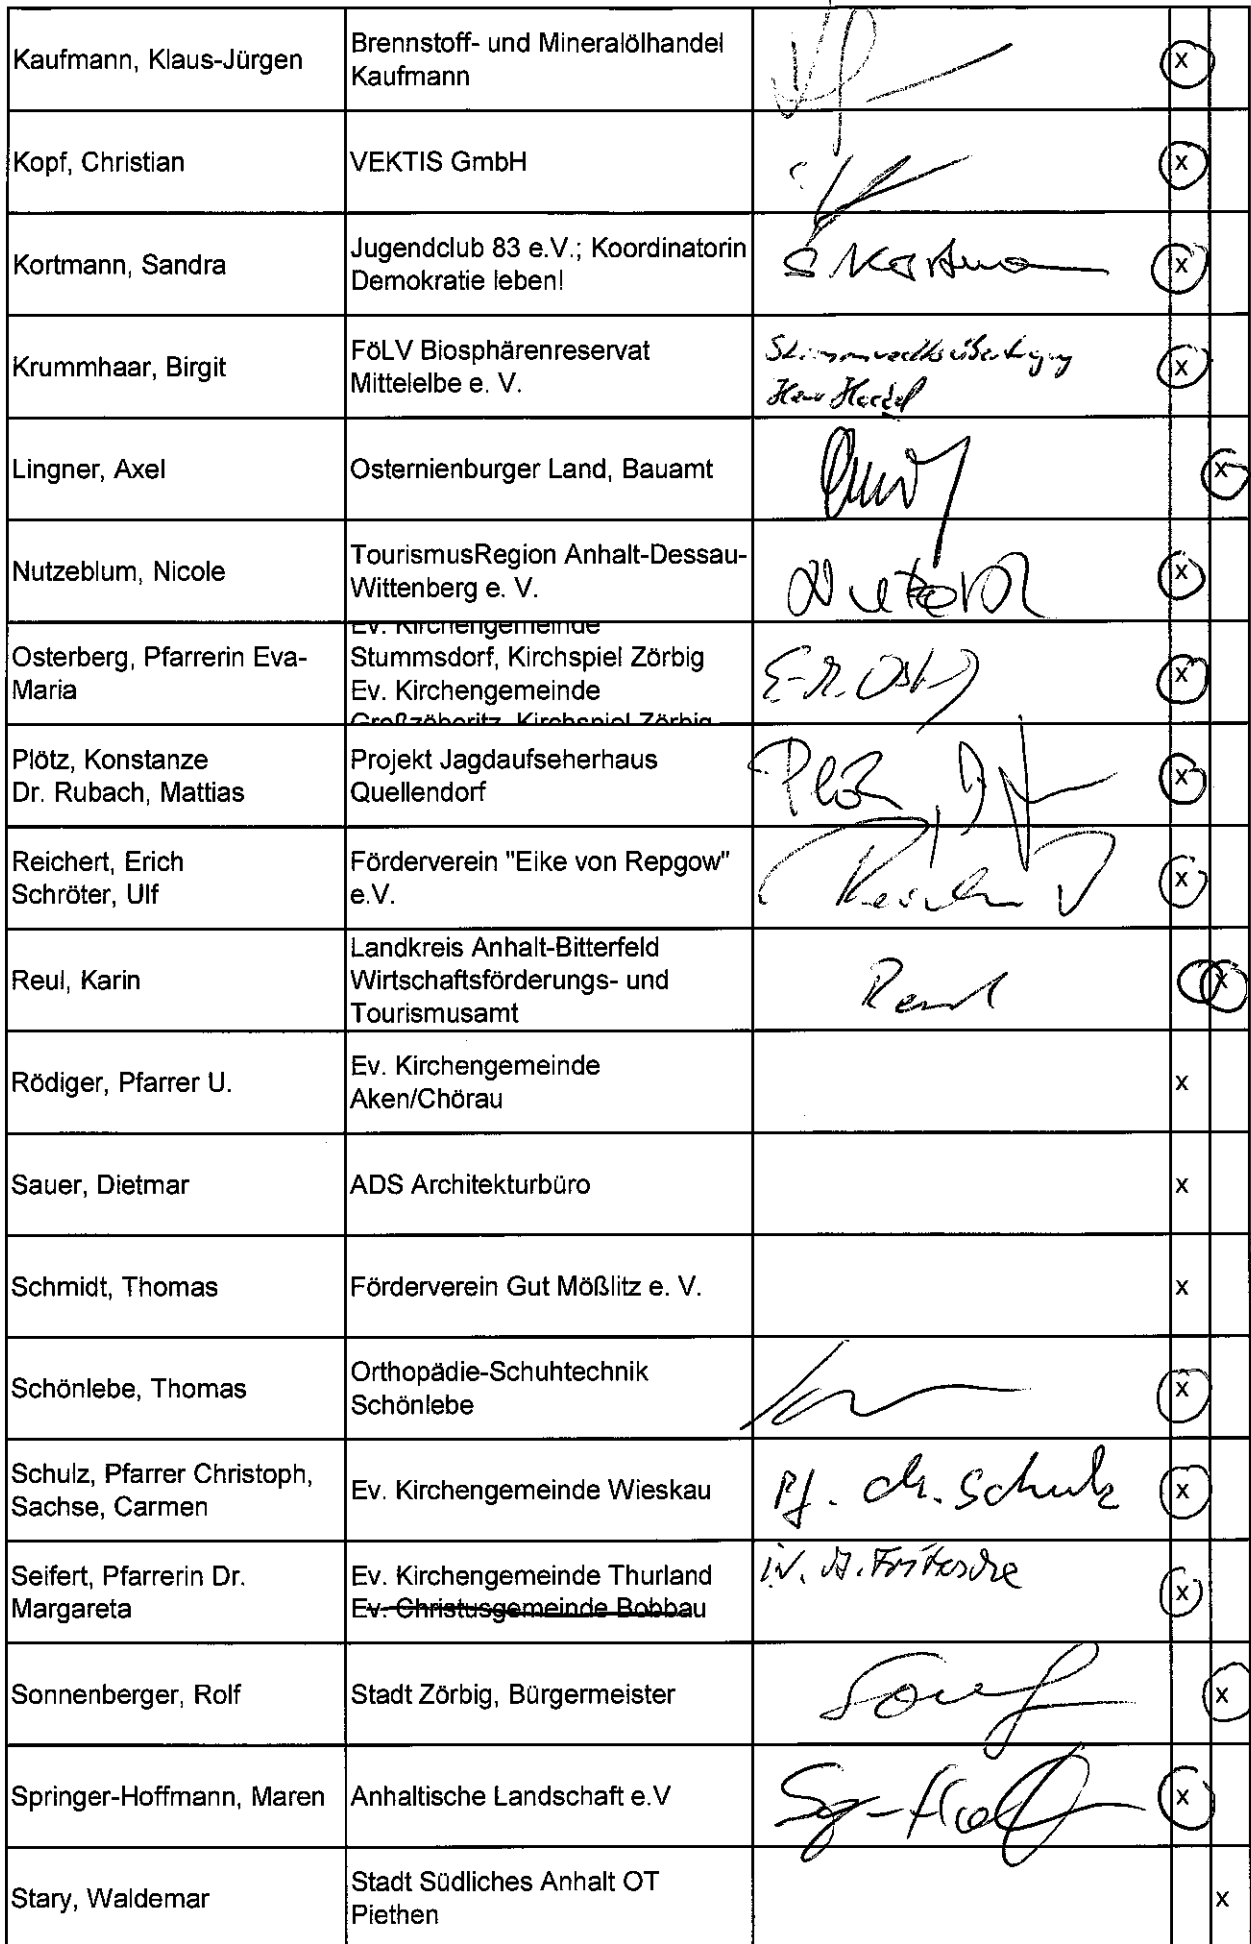 Kaufmann, Klaus-Jürgen
Brennstoff- und Mineralölhandel
Kaufmann
x
Kopf, Christian
VEKTIS GmbH
x
Kortmann, Sandra
Jugendclub 83 e.V.; Koordinatorin
Demokratie leben!
x
Krummhaar, Birgit
FöLV Biosphärenreservat
Mittelelbe e. V.
Stimmrechtsübertragung
Herr
x
Lingner, Axel
Osternienburger Land, Bauamt
x
Nutzeblum, Nicole
TourismusRegion Anhalt-Dessau-
Wittenberg e. V.
x
Osterberg, Pfarrerin Eva-
Maria
Ev. Kirchengemeinde
Stummsdorf, Kirchspiel Zörbig
Ev. Kirchengemeinde
Großzöberitz, Kirchspiel Zörbig
x
Plötz, Konstanze
Dr. Rubach, Mattias
Projekt Jagdaufseherhaus
Quellendorf
x
Reichert, Erich
Schröter, Ulf
Förderverein "Eike von Repgow"
e.V.
x
Reul, Karin
Landkreis Anhalt-Bitterfeld
Wirtschaftsförderungs- und
Tourismusamt
Reul
x
Rödiger, Pfarrer U.
Ev. Kirchengemeinde
Aken/Chörau
x
Sauer, Dietmar
ADS Architekturbüro
x
Schmidt, Thomas
Förderverein Gut Mößlitz e. V.
x
Schönlebe, Thomas
Orthopädie-Schuhtechnik
Schönlebe
x
Schulz, Pfarrer Christoph,
Sachse, Carmen
Ev. Kirchengemeinde Wieskau
Pf. Ch. Schulz
x
Seifert, Pfarrerin Dr.
Margareta
Ev. Kirchengemeinde Thurland
Ev. Christusgemeinde Bobbau
i.V. A. Fritzsche
x
Sonnenberger, Rolf
Stadt Zörbig, Bürgermeister
x
Springer-Hoffmann, Maren
Anhaltische Landschaft e.V
x
Stary, Waldemar
Stadt Südliches Anhalt OT
Piethen
x